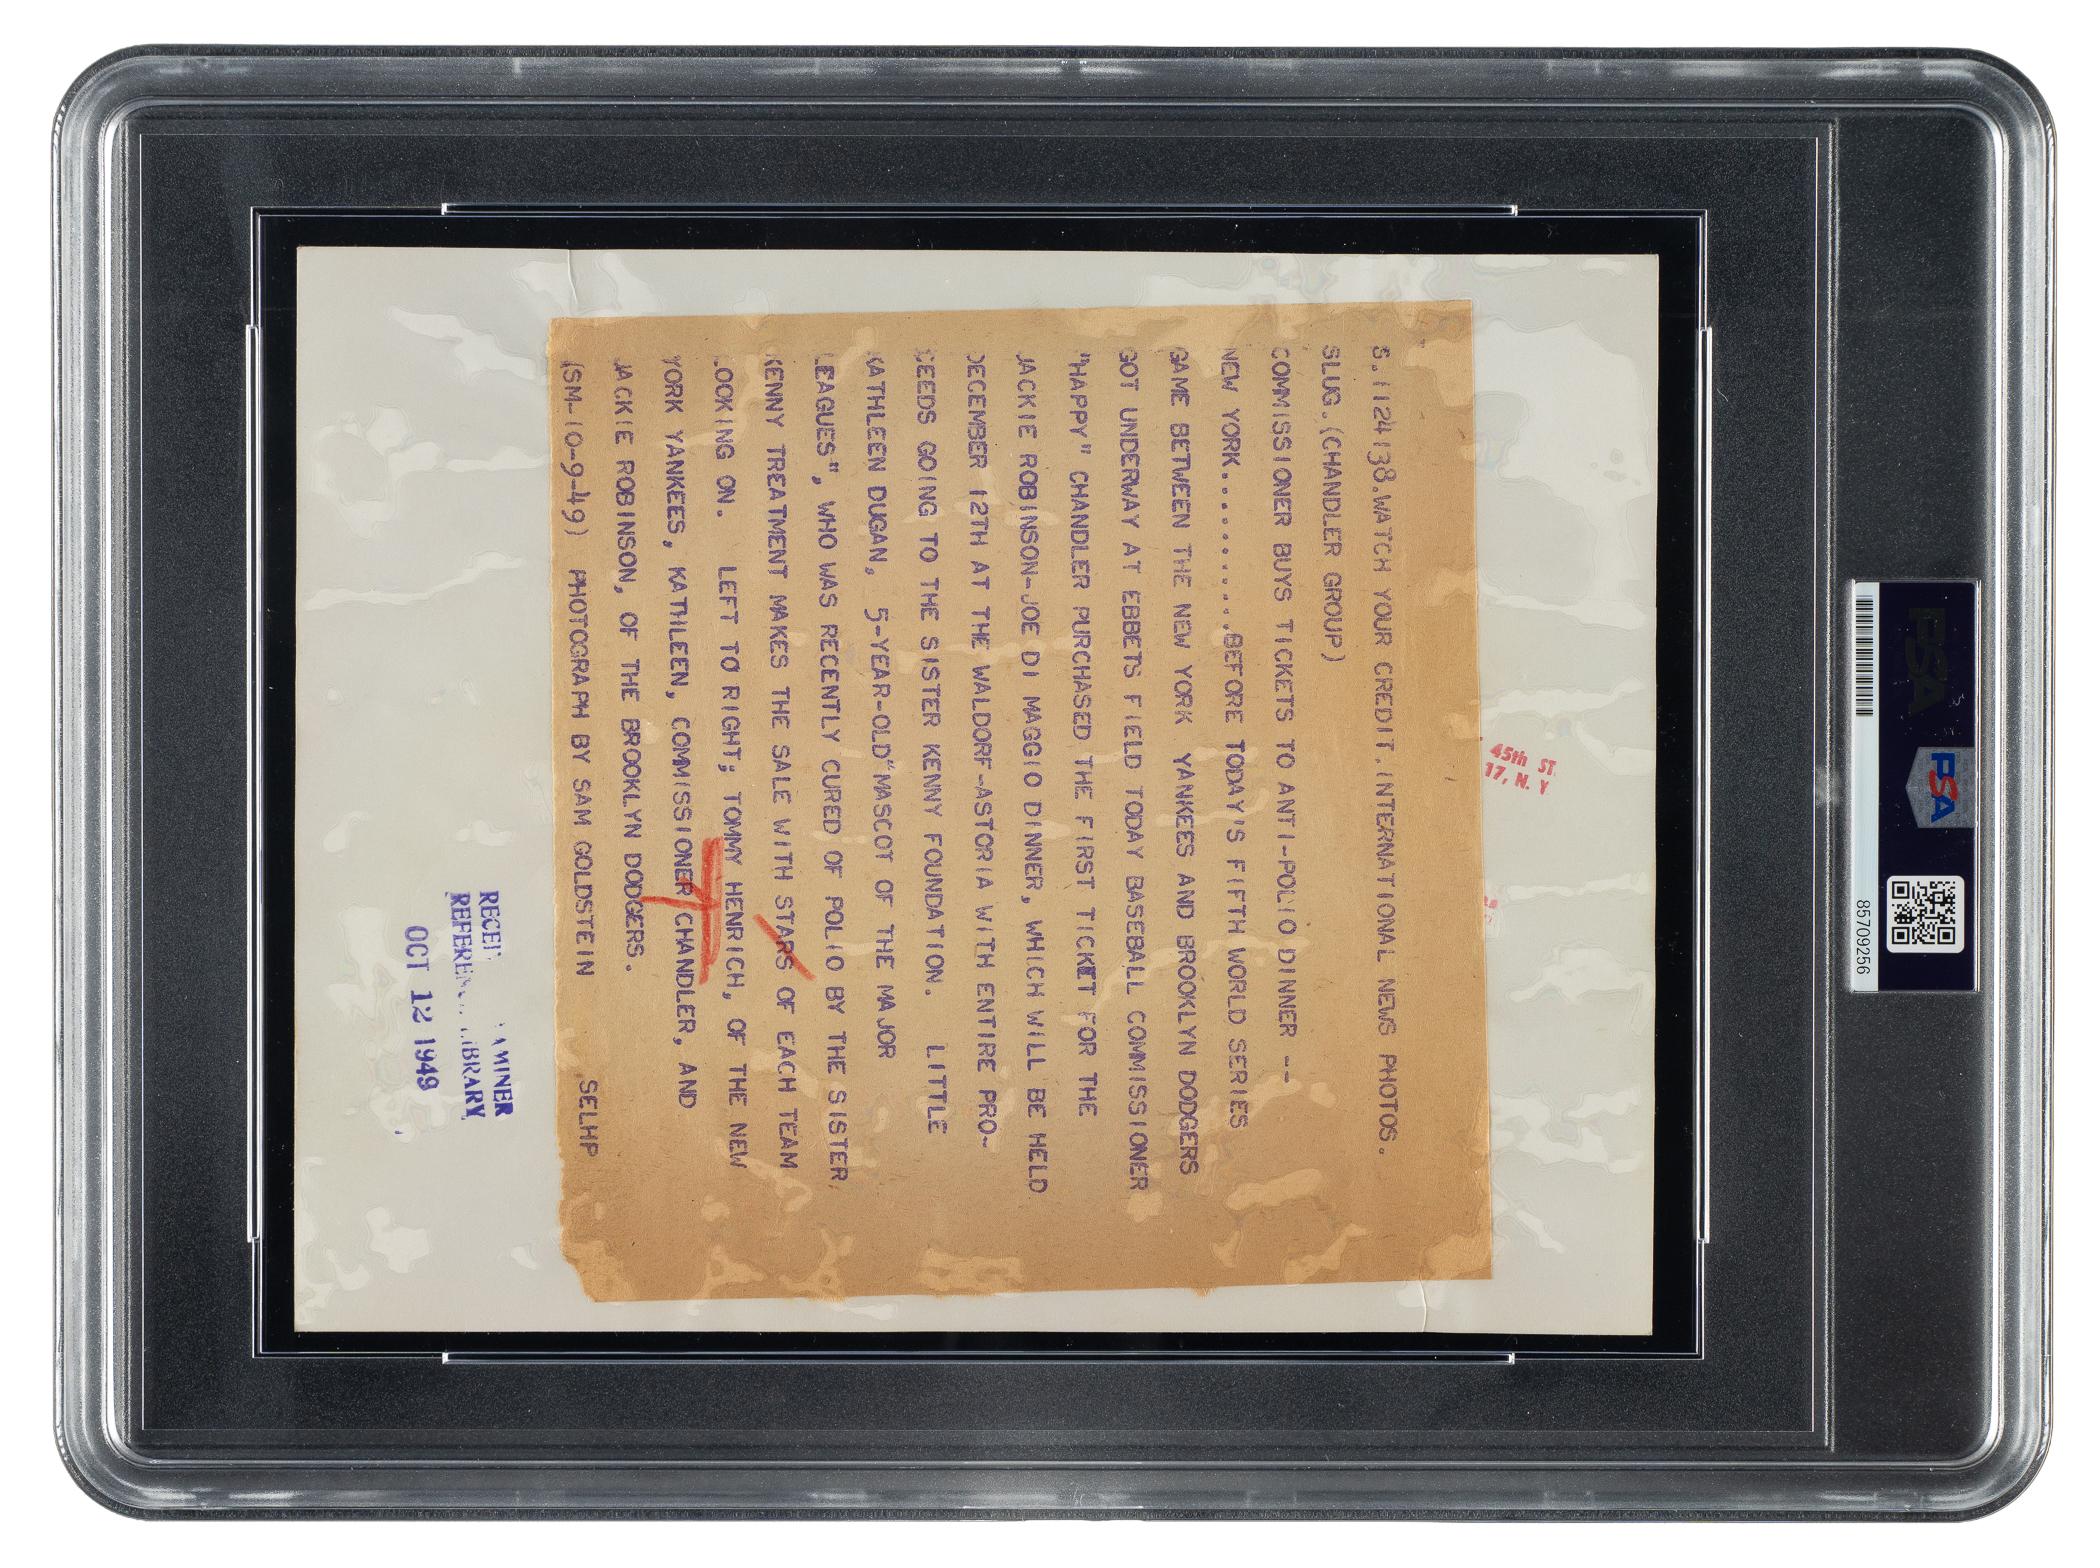 S.1124138.WATCH YOUR CREDIT.INTERNATIONAL NEWS PHOTOS.
SLUG.(CHANDLER GROUP)
COMMISSIONER BUYS TICKETS TO ANTI-POLIO DINNER --
NEW YORK...........BEFORE TODAY'S FIFTH WORLD SERIES
GAME BETWEEN THE NEW YORK YANKEES AND BROOKLYN DODGERS
GOT UNDERWAY AT EBBETS FIELD TODAY BASEBALL COMMISSIONER
"HAPPY" CHANDLER PURCHASED THE FIRST TICKET FOR THE
JACKIE ROBINSON-JOE DI MAGGIO DINNER, WHICH WILL BE HELD
DECEMBER 12TH AT THE WALDORF-ASTORIA WITH ENTIRE PRO-
CEEDS GOING TO THE SISTER KENNY FOUNDATION. LITTLE
KATHLEEN DUGAN, 5-YEAR-OLD"MASCOT OF THE MAJOR
LEAGUES", WHO WAS RECENTLY CURED OF POLIO BY THE SISTER
KENNY TREATMENT MAKES THE SALE WITH STARS OF EACH TEAM
LOOKING ON. LEFT TO RIGHT; TOMMY HENRICH, OF THE NEW
YORK YANKEES, KATHLEEN, COMMISSIONER CHANDLER, AND
JACKIE ROBINSON, OF THE BROOKLYN DODGERS.
(SM-10-9-49) PHOTOGRAPH BY SAM GOLDSTEIN SELHP
45th ST.
17, N. Y
LIBRARY
OCT 12 1949
PSA
PSA
85709256